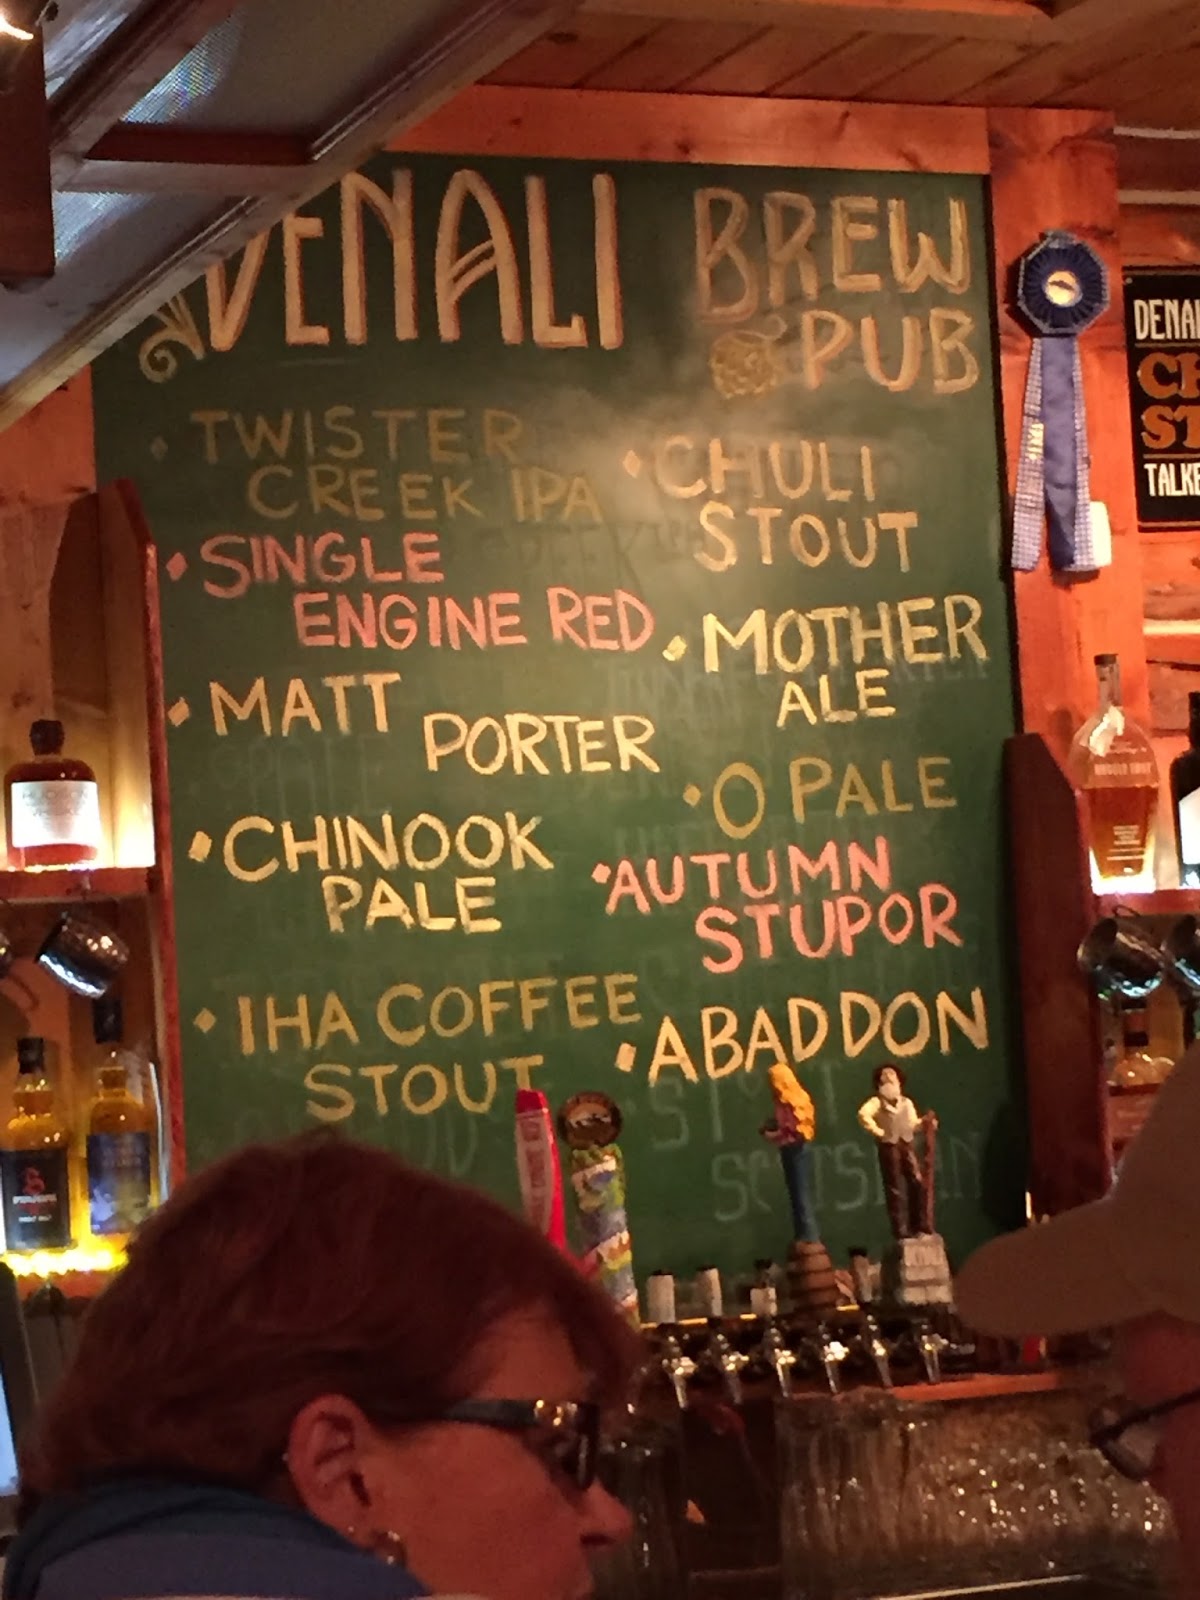 DENALI BREW
PUB
TWISTER
CREEK IPA
SINGLE
ENGINE RED
MATT PORTER
CHINOOK
PALE
IHA COFFEE
STOUT
CHULI
STOUT
MOTHER
ALE
O PALE
AUTUMN
STUPOR
ABADDON
DENA
CH
ST
TALKE